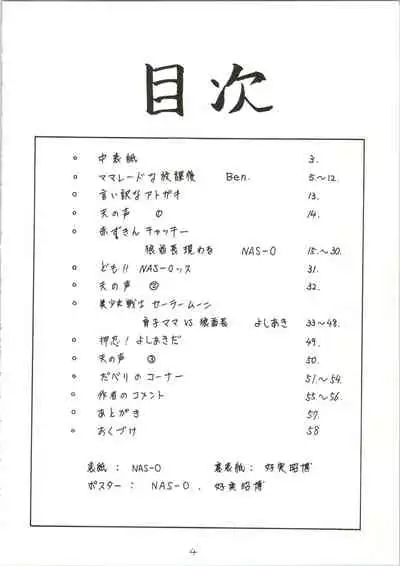 目次
○ 中表紙 3.
○ ママレードな放課後 Ben. 5~12.
○ 言い訳なアトガキ 13.
○ 天の声 ① 14.
○ 赤ずきん チャッチー
狼酋長現わる NAS-O 15~30.
○ ども!! NAS-Oッス 31.
○ 天の声 ② 32.
○ 美少女戦士 セーラームーン
育子ママ VS 狼酋長 よしあき 33~48.
○ 押忍! よしあきだ 49.
○ 天の声 ③ 50.
○ だべりのコーナー 51~54.
○ 作者のコメント 55~56.
○ あとがき 57.
○ おくづけ 58
表紙: NAS-O 裏表紙: 好実昭博
ポスター: NAS-O. 好実昭博
4